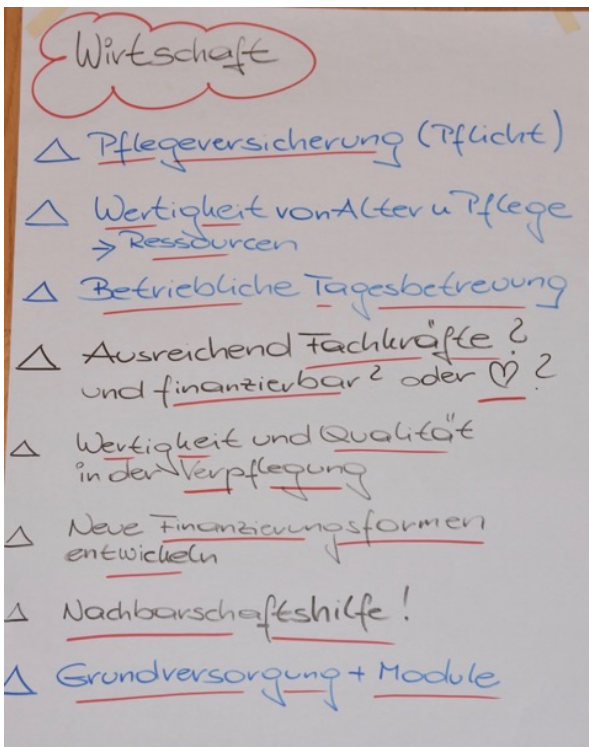 Wirtschaft
△ Pflegeversicherung (Pflicht)
△ Wertigkeit von Alter u Pflege
→ Ressourcen
△ Betriebliche Tagesbetreuung
△ Ausreichend Fachkräfte?
und finanzierbar? oder ♡?
△ Wertigkeit und Qualität
in der Verpflegung
△ Neue Finanzierungsformen
entwickeln
△ Nachbarschaftshilfe!
△ Grundversorgung + Module